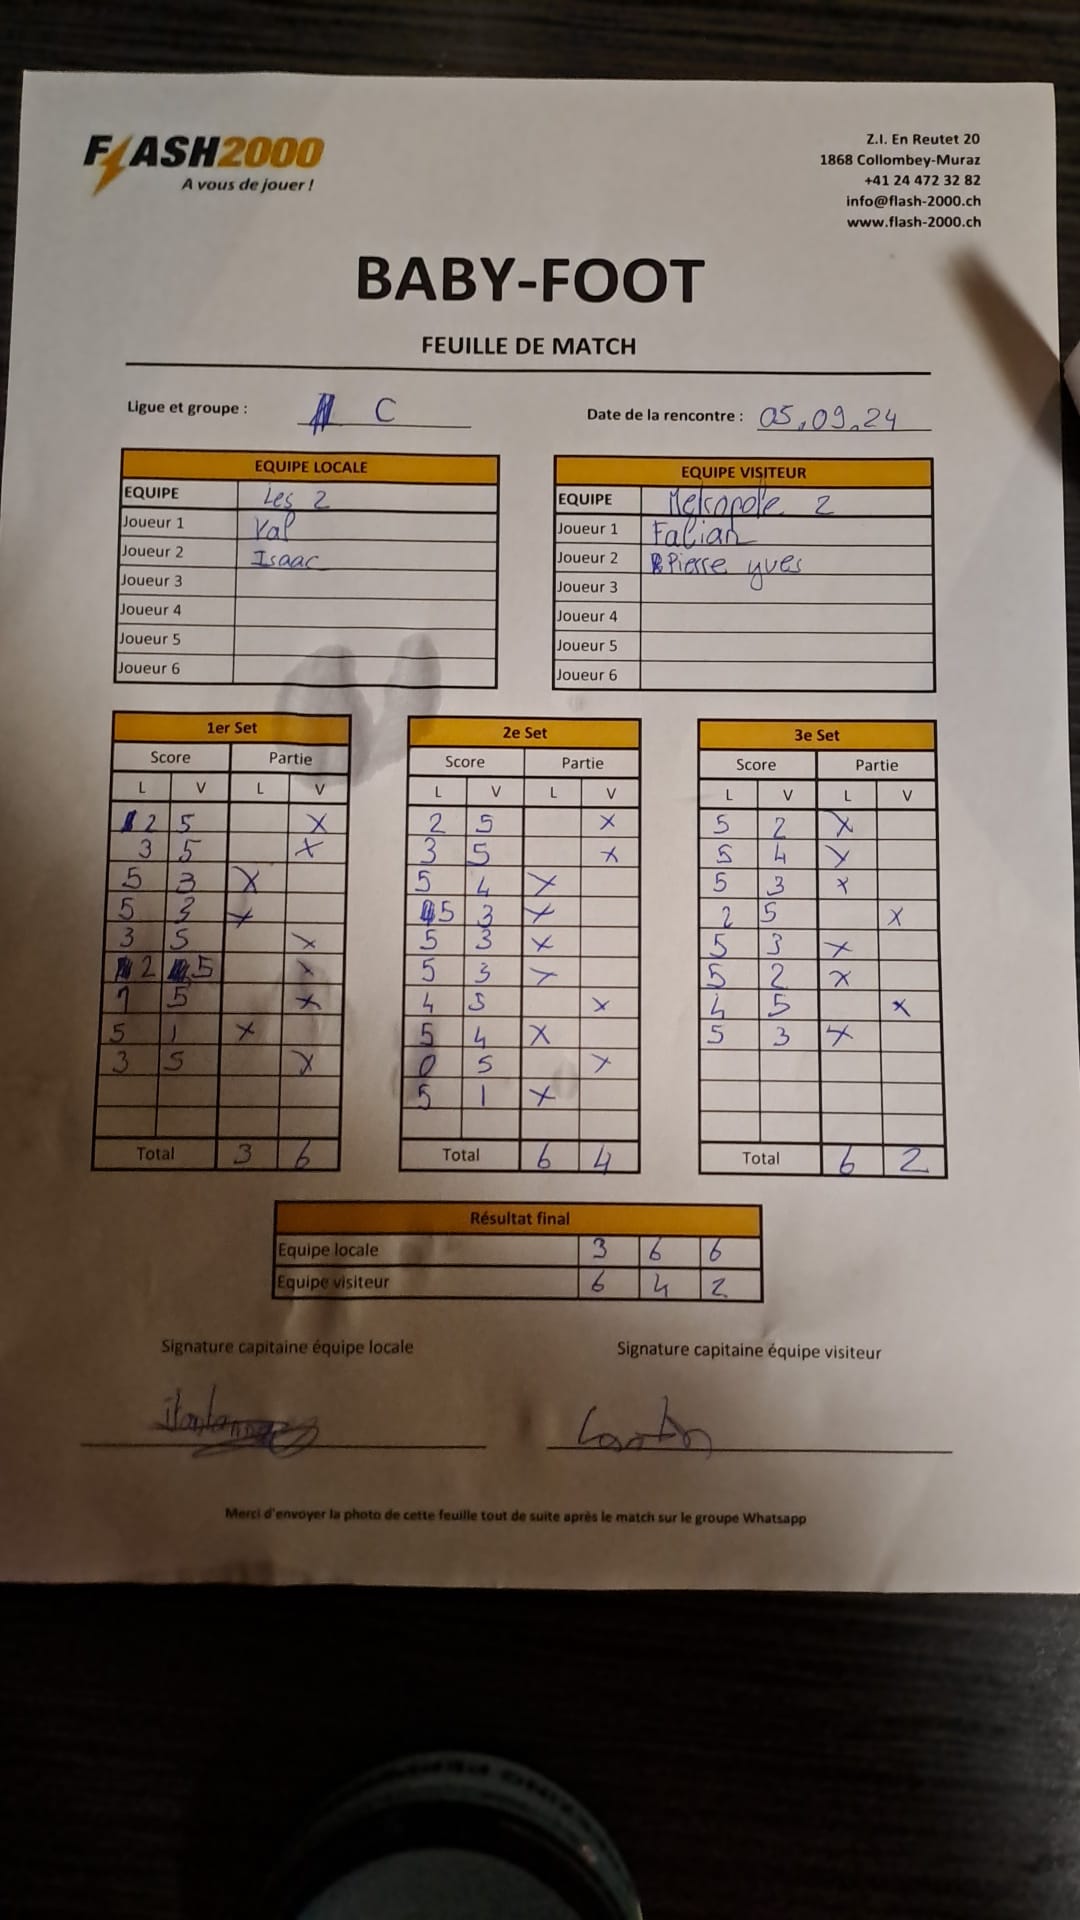 FLASH2000
A vous de jouer !
Z.I. En Reutet 20
1868 Collombey-Muraz
+41 24 472 32 82
info@flash-2000.ch
www.flash-2000.ch
BABY-FOOT
FEUILLE DE MATCH
Ligue et groupe : C
Date de la rencontre : 05.09.24
EQUIPE LOCALE
EQUIPE Les 2
Joueur 1 Val
Joueur 2 Isaac
Joueur 3
Joueur 4
Joueur 5
Joueur 6
EQUIPE VISITEUR
EQUIPE Metropole 2
Joueur 1 Fabian
Joueur 2 Pierre yves
Joueur 3
Joueur 4
Joueur 5
Joueur 6
1er Set
Score Partie
L V L V
2 5 X
3 5 X
5 3 X
5 3 X
3 5 X
2 5 X
1 5 X
5 1 X
3 5 X
Total 3 6
2e Set
Score Partie
L V L V
2 5 X
3 5 X
5 4 X
5 3 X
5 3 X
5 3 X
4 5 X
5 4 X
0 5 X
5 1 X
Total 6 4
3e Set
Score Partie
L V L V
5 2 X
5 4 X
5 3 X
2 5 X
5 3 X
5 2 X
4 5 X
5 3 X
Total 6 2
Résultat final
Equipe locale 3 6 6
Equipe visiteur 6 4 2
Signature capitaine équipe locale
Signature capitaine équipe visiteur
Merci d'envoyer la photo de cette feuille tout de suite après le match sur le groupe Whatsapp